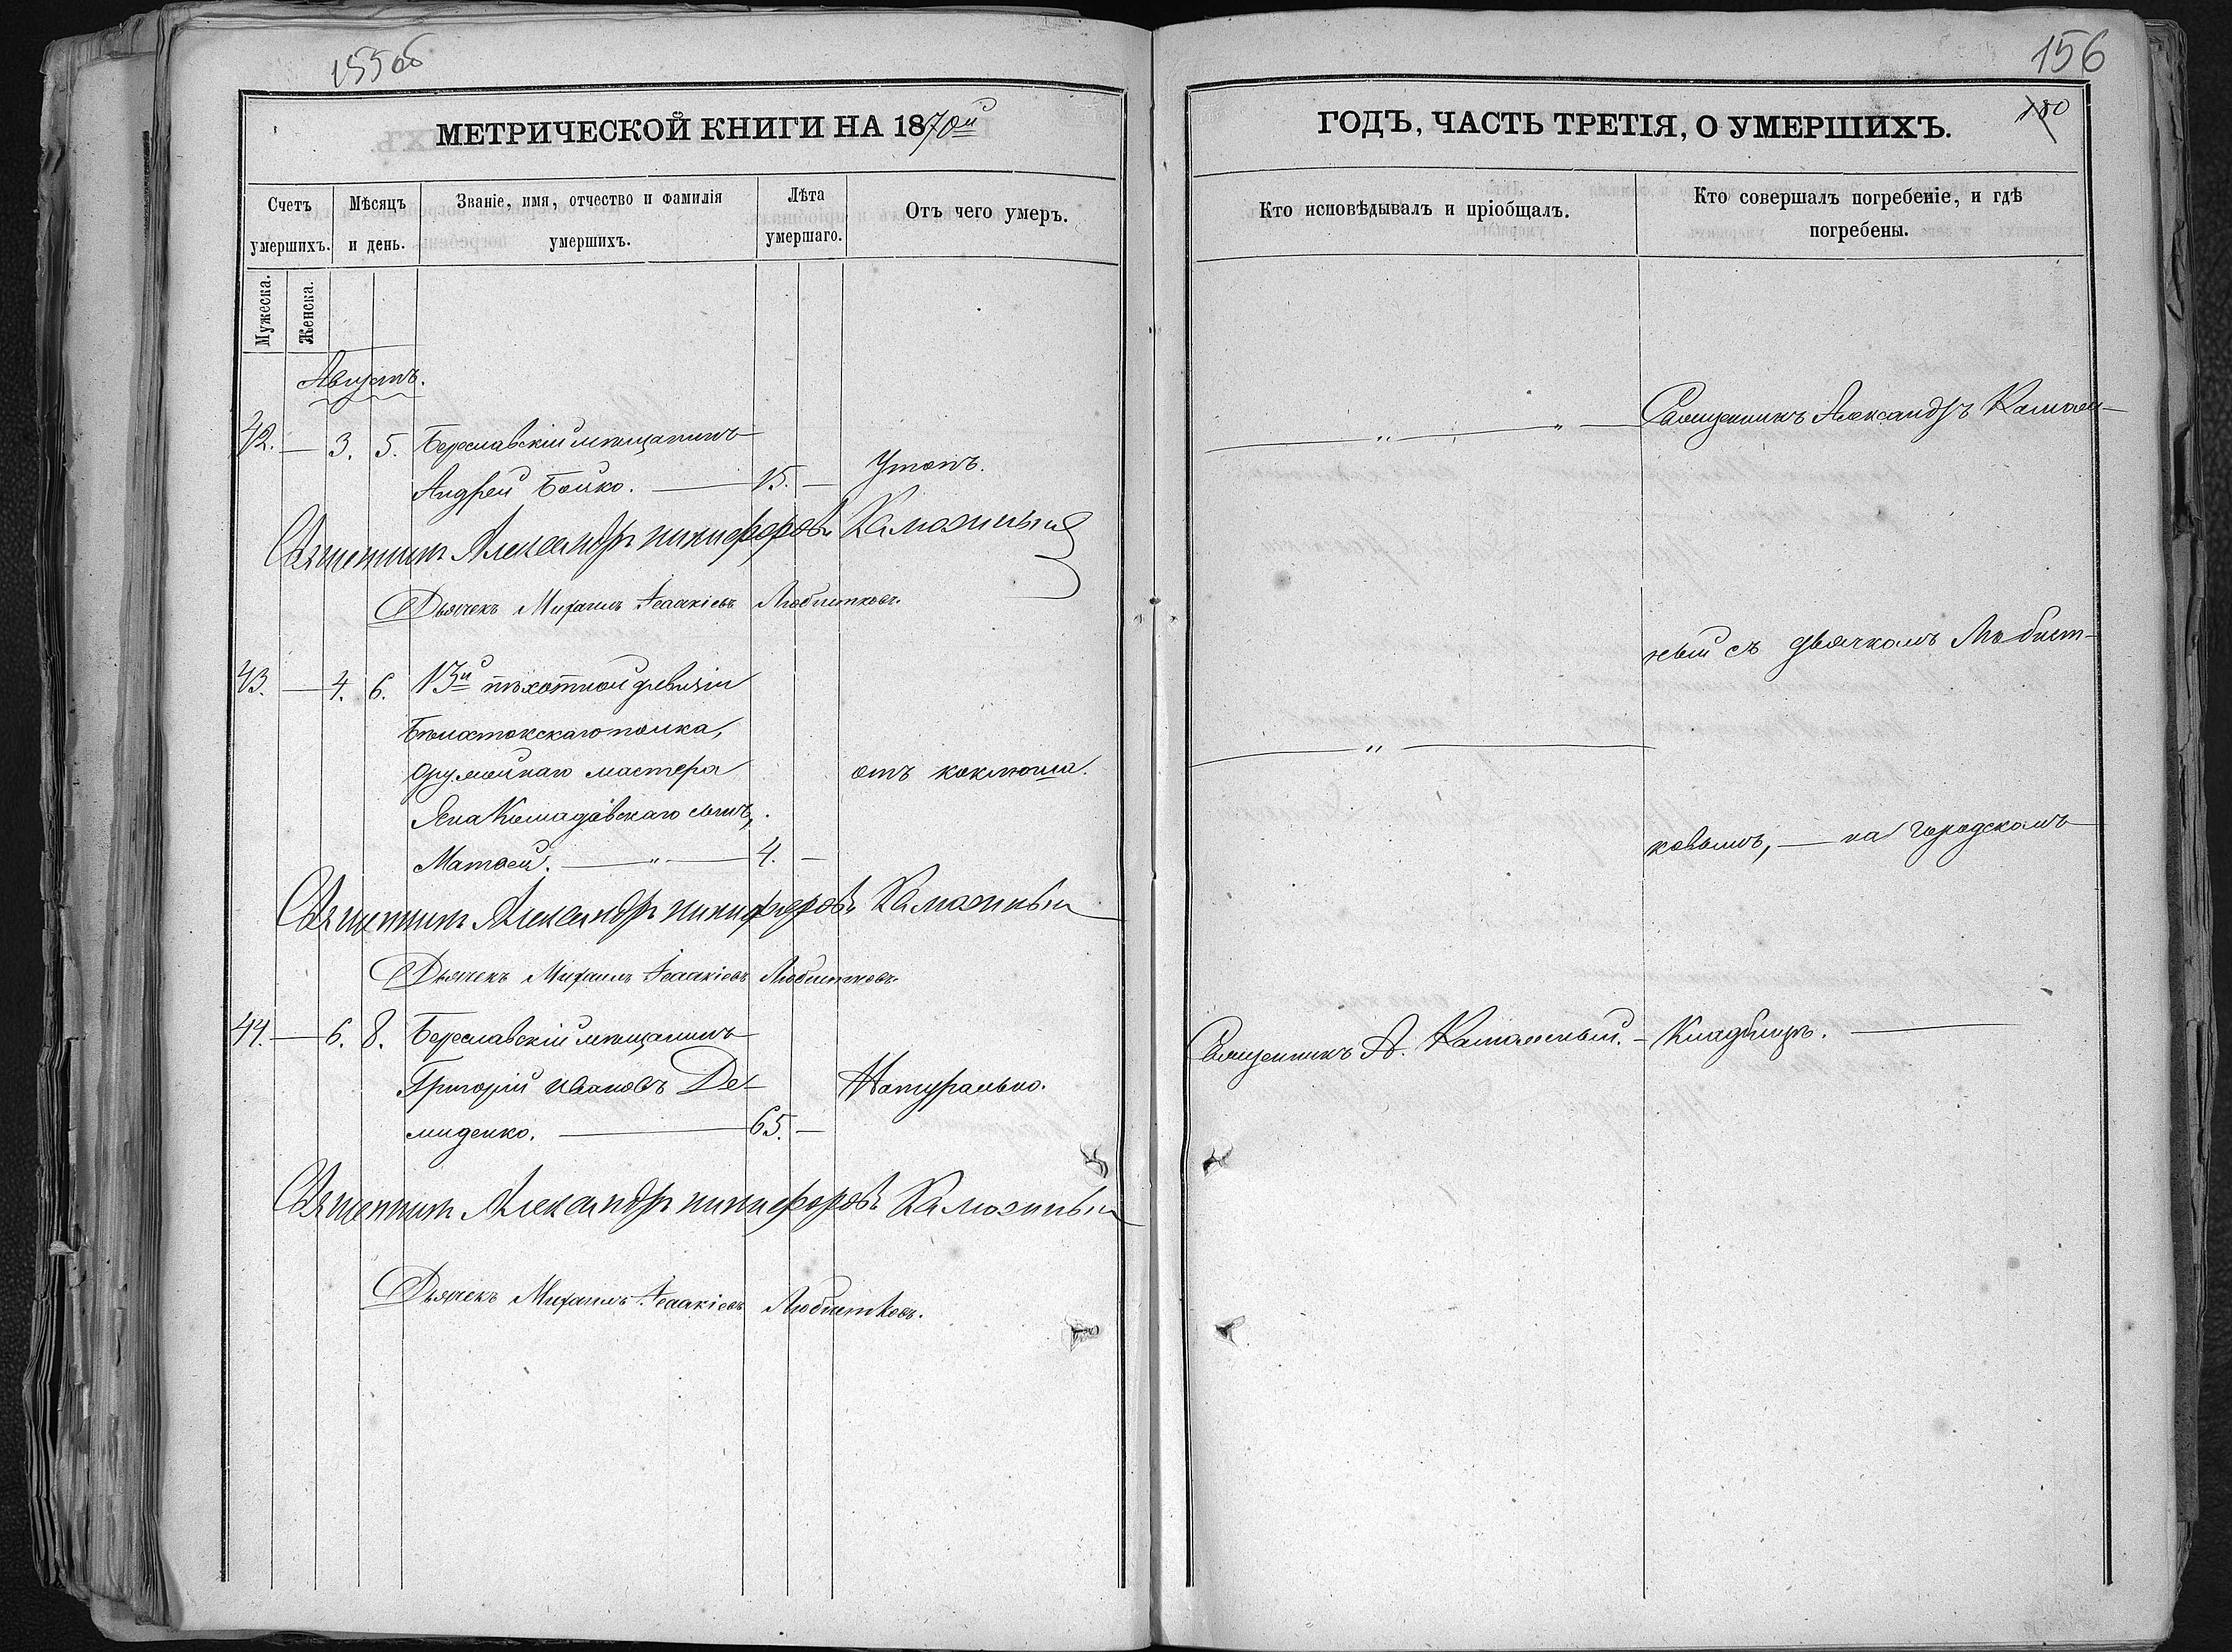 155об
МЕТРИЧЕСКОЙ КНИГИ НА 1870й
Счетъ умершихъ.
Мѣсяцъ и день.
Званіе, имя, отчество и фамилія умершихъ.
Лѣта умершаго.
Отъ чего умеръ.
Мужеска.
Женска.
Августъ.
42. — 3. 5. Береславскій мѣщанинъ
Андрей Бойко. — 15. — Утопъ.
Священникъ Александръ Никифоровъ
Дьячекъ Михаилъ Ісаакіевъ Любитковъ.
43. — 4. 6. 13й пѣхотной дивизіи
Бѣлостокскаго полка,
оружейнаго мастера отъ коклюша.
Яна сынъ,
Матвей. — " — 4. —
Священникъ Александръ Никифоровъ
Дьячекъ Михаилъ Ісаакіевъ Любитковъ.
44. — 6. 8. Береславскій мѣщанинъ
Григорій Ивановъ Де- Натурально.
миденко. — 65. —
Священникъ Александръ Никифоровъ
Дьячекъ Михаилъ Ісаакіевъ Любитковъ.
156
180
ГОДЪ, ЧАСТЬ ТРЕТІЯ, О УМЕРШИХЪ.
Кто исповѣдывалъ и пріобщалъ.
Кто совершалъ погребеніе, и гдѣ погребены.
— " — " — Священникъ Александръ
съ дьячкомъ Любит-
— " —
ковымъ, — на городскомъ
Священникъ А. — Кладбищѣ. —